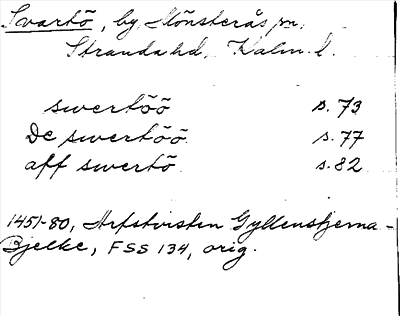 Svartö, by, Mönsterås sn,
Stranda hd, Kalm. l.
swertöö s. 73
De swertöö s. 77
aff swertö s. 82
1451-80, Arfstvisten Gyllenstjerna -
Bjelke, FSS 134, orig.